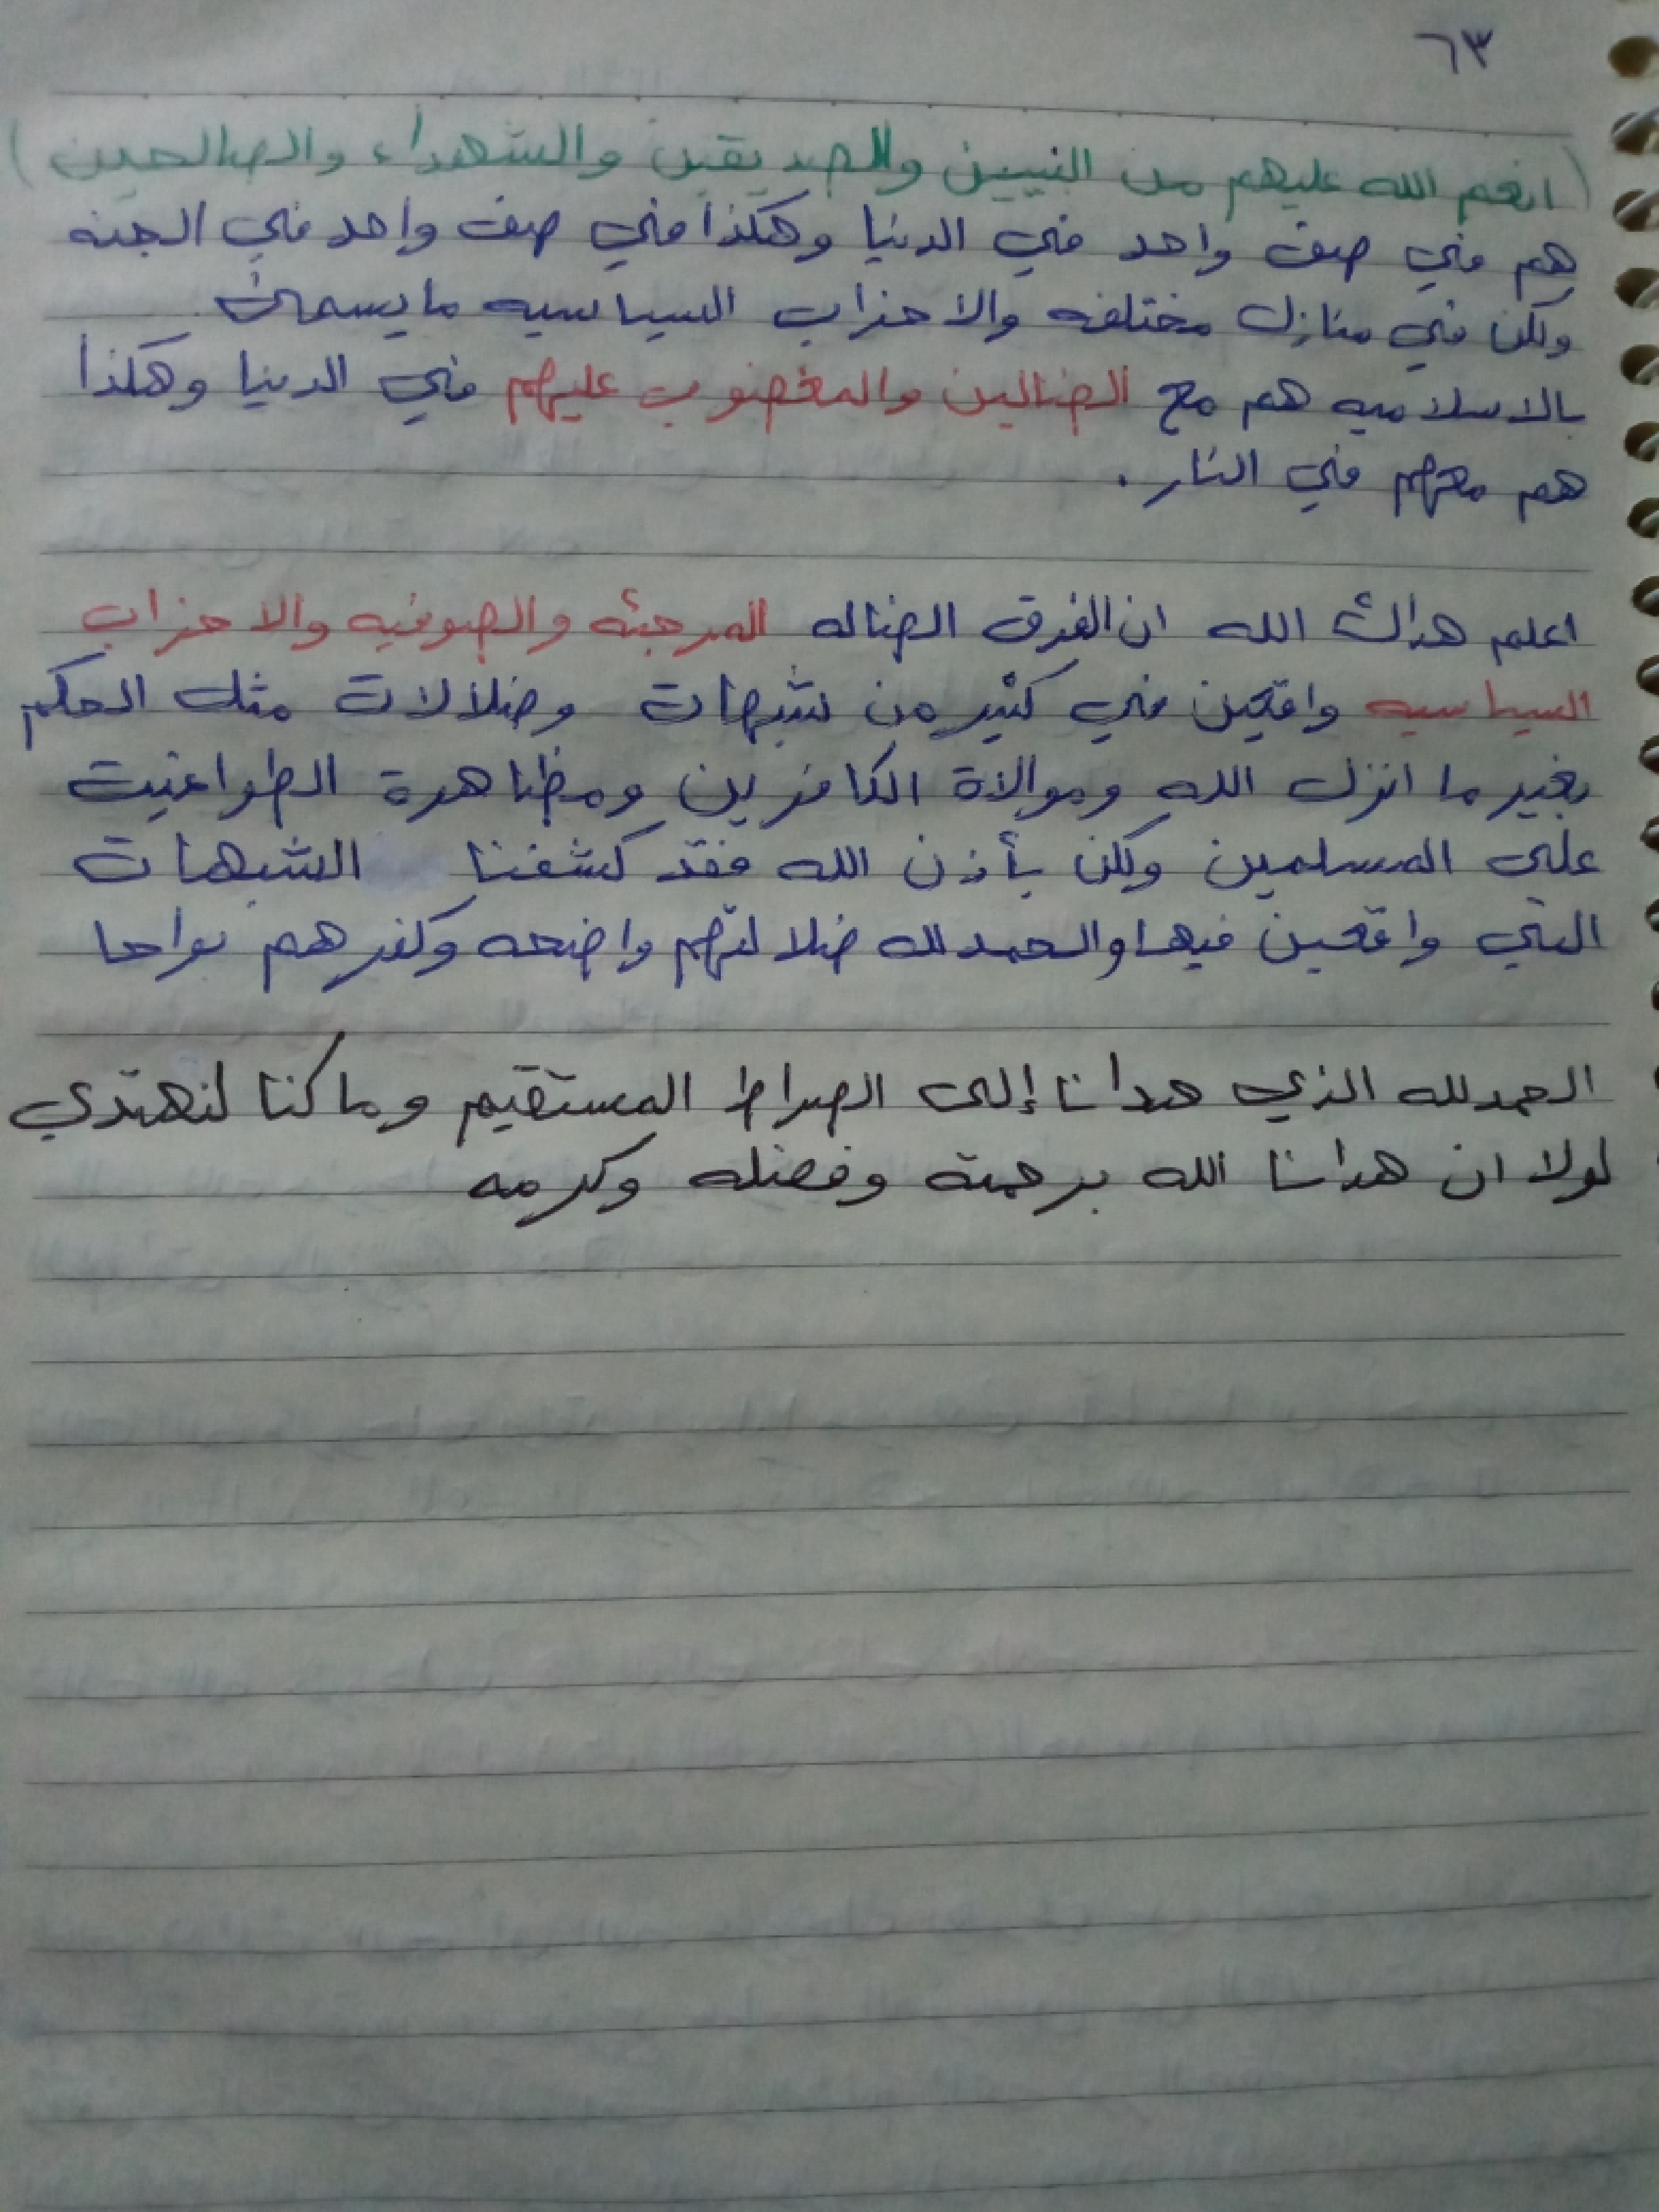 ٦٣
(انعم الله عليهم من النبيين والصديقين والشهداء والصالحين)
هم في صف واحد في الدنيا وهكذا في صف واحد في الجنه
ولكن في منازل مختلفه والاحزاب السياسيه ما يسمى
بالاسلاميه هم مع الضالين والمغضوب عليهم في الدنيا وهكذا
هم معهم في النار .
اعلم هداك الله ان الفرق الضاله المرجئه والصوفيه والاحزاب
السياسيه واقعين في كثير من شبهات وضلالات مثل الحكم
بغير ما انزل الله وموالاة الكافرين ومظاهرة الطواغيت
على المسلمين ولكن بأذن الله فقد كشفنا الشبهات
التي واقعين فيها والحمدلله ضلالتهم واضحه وكفرهم بواحا
الحمدلله الذي هدانا إلى الصراط المستقيم وما كنا لنهتدي
لولا ان هدانا الله برحمة وفضله وكرمه